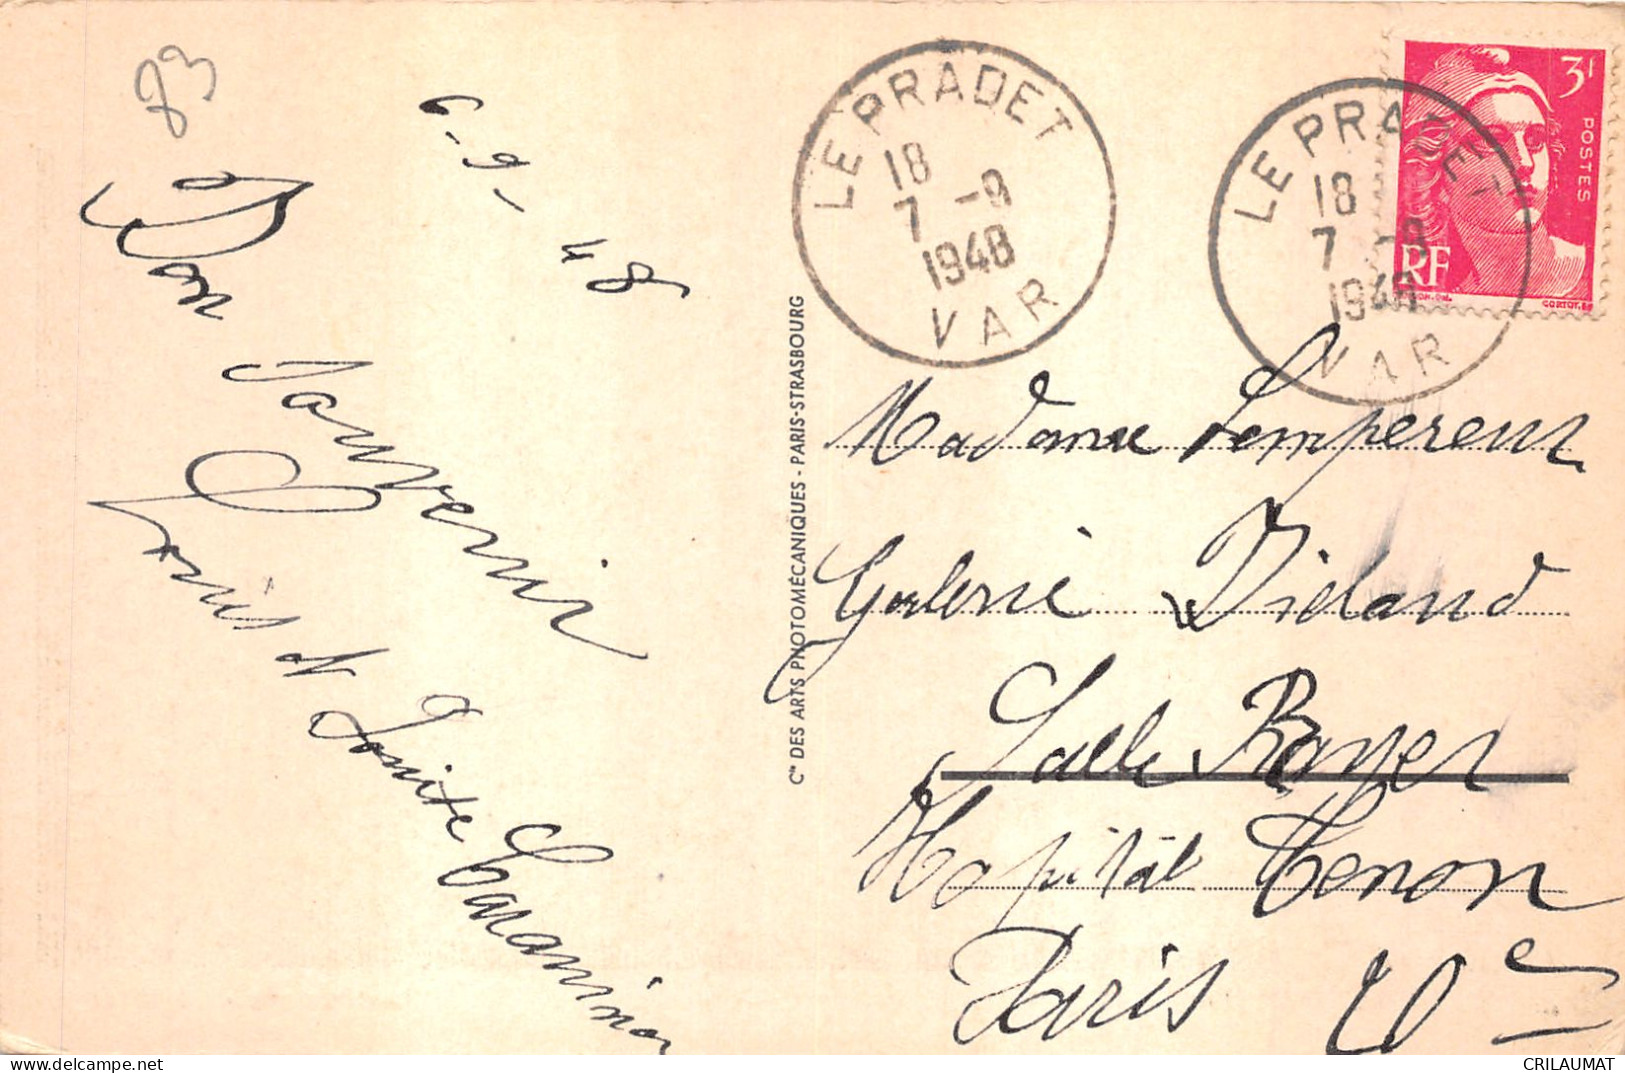 83
6-9-48
Bon Souvenir
Louis et Louise
LE PRADET
18
7 -9
1948
VAR
LE PRADET
18
7 -9
1948
VAR
3F
POSTES
RF
GORTOT.
Cie DES ARTS PHOTOMÉCANIQUES - PARIS-STRASBOURG
Madame Lempereur
Galerie
Salle Rayer
Hopital Tenon
Paris 20e
CRILAUMAT